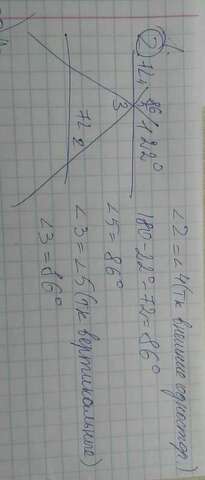 2
72 4 86 1 22°
3
72 2
∠2 = ∠4 (тк внешние одностор)
180 - 22° - 72 = 86°
∠5 = 86°
∠3 = ∠5 (тк вертикальные)
∠3 = 86°